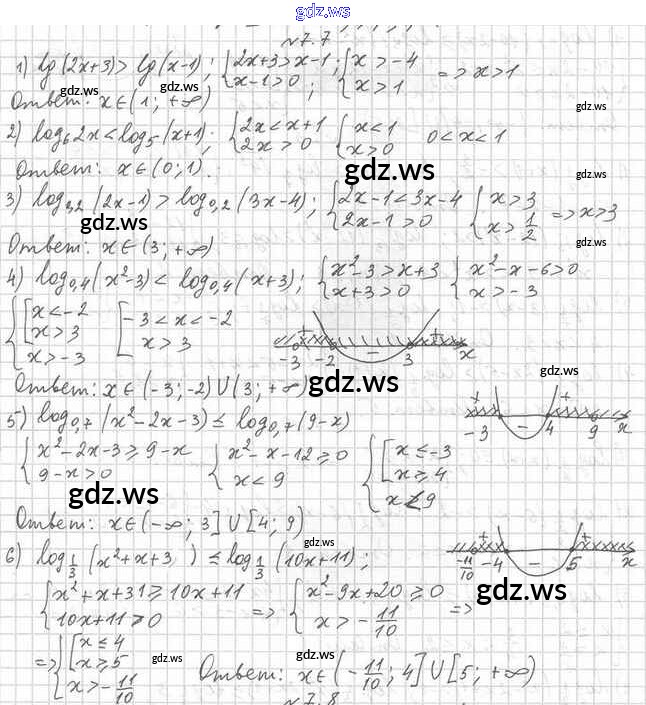 gdz.ws
№7.7
1) lg(2x+3) > lg(x-1); { 2x+3 > x-1; x-1 > 0; { x > -4 x > 1 => x > 1
Ответ: x∈(1; +∞)
gdz.ws
gdz.ws
2) log₆2x < log₅(x+1); { 2x < x+1 2x > 0 { x < 1 x > 0 0 < x < 1
Ответ: x∈(0; 1).
gdz.ws
gdz.ws
3) log₃,₂(2x-1) > log₀,₂(3x-4); { 2x-1 < 3x-4 2x-1 > 0 { x > 3 x > 1/2 => x > 3
gdz.ws
Ответ: x∈(3; +∞)
gdz.ws
4) log₀,₄(x²-3) < log₀,₄(x+3); { x²-3 > x+3 x+3 > 0 { x²-x-6 > 0 x > -3
{ [ x < -2 x > 3 x > -3 [ -3 < x < -2 x > 3
+ - + -3 -2 3 x
Ответ: x∈(-3; -2)∪(3; +∞)
gdz.ws
gdz.ws
5) log₀,₇(x²-2x-3) ≤ log₀,₇(9-x)
+ - + -3 4 9 x
{ x²-2x-3 ≥ 9-x 9-x > 0 { x²-x-12 ≥ 0 x < 9 { [ x ≤ -3 x ≥ 4 x < 9
gdz.ws
Ответ: x∈(-∞; 3]∪[4; 9)
6) log_1/3 (x²+x+3 ) ≤ log_1/3 (10x+11);
+ - + -11/10 -4 5 x
{ x²+x+31 ≥ 10x+11 10x+11 > 0 => { x²-9x+20 ≥ 0 x > -11/10 =>
gdz.ws
=> { [ x ≤ 4 x ≥ 5 x > -11/10
gdz.ws
Ответ: x∈(-11/10; 4]∪[5; +∞)
№7.8